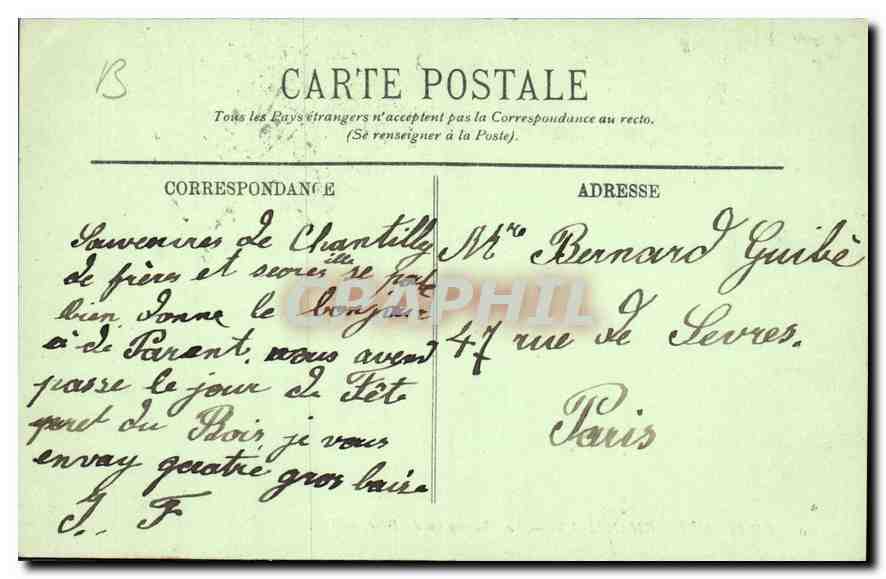 B
CARTE POSTALE
Tous les Pays étrangers n'acceptent pas la Correspondance au recto.
(Se renseigner à la Poste).
CORRESPONDANCE
Souvenires de Chantilly
de frères et seores ille se porte
bien donne le bonjour
a de Parent. nous avend
passe le jour de Fête
pret du Bois, je vous
envay quatre gros baise
J. F
ADRESSE
Mre Bernard Guibé
47 rue de Sevres.
Paris
CPAPHIL